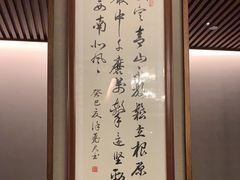 定青山不放鬆立根原
中千磨萬擊還堅勁
西南北風
癸巳夏